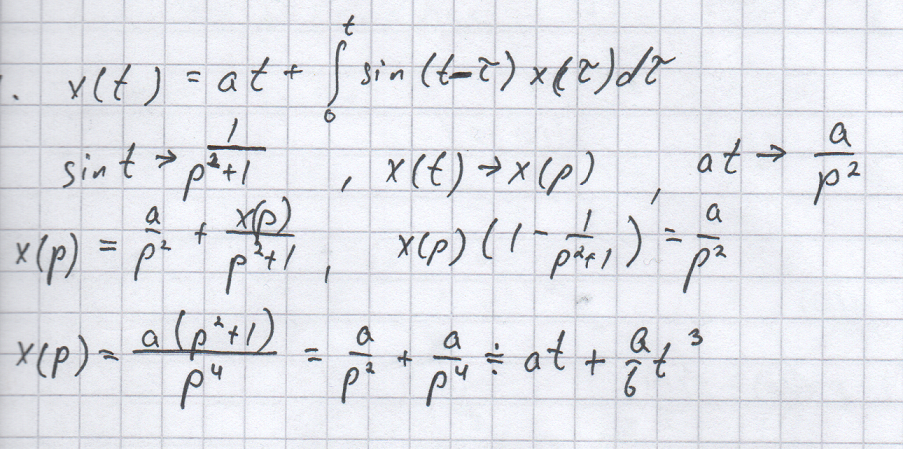 . x(t) = at + ∫₀ᵗ sin(t-τ) x(τ)dτ
sin t → 1/(p²+1) , x(t) → x(p) , at → a/p²
x(p) = a/p² + x(p)/(p²+1) , x(p) (1 - 1/(p²+1)) = a/p²
x(p) = a(p²+1)/p⁴ = a/p² + a/p⁴ ≑ at + a/6 t³